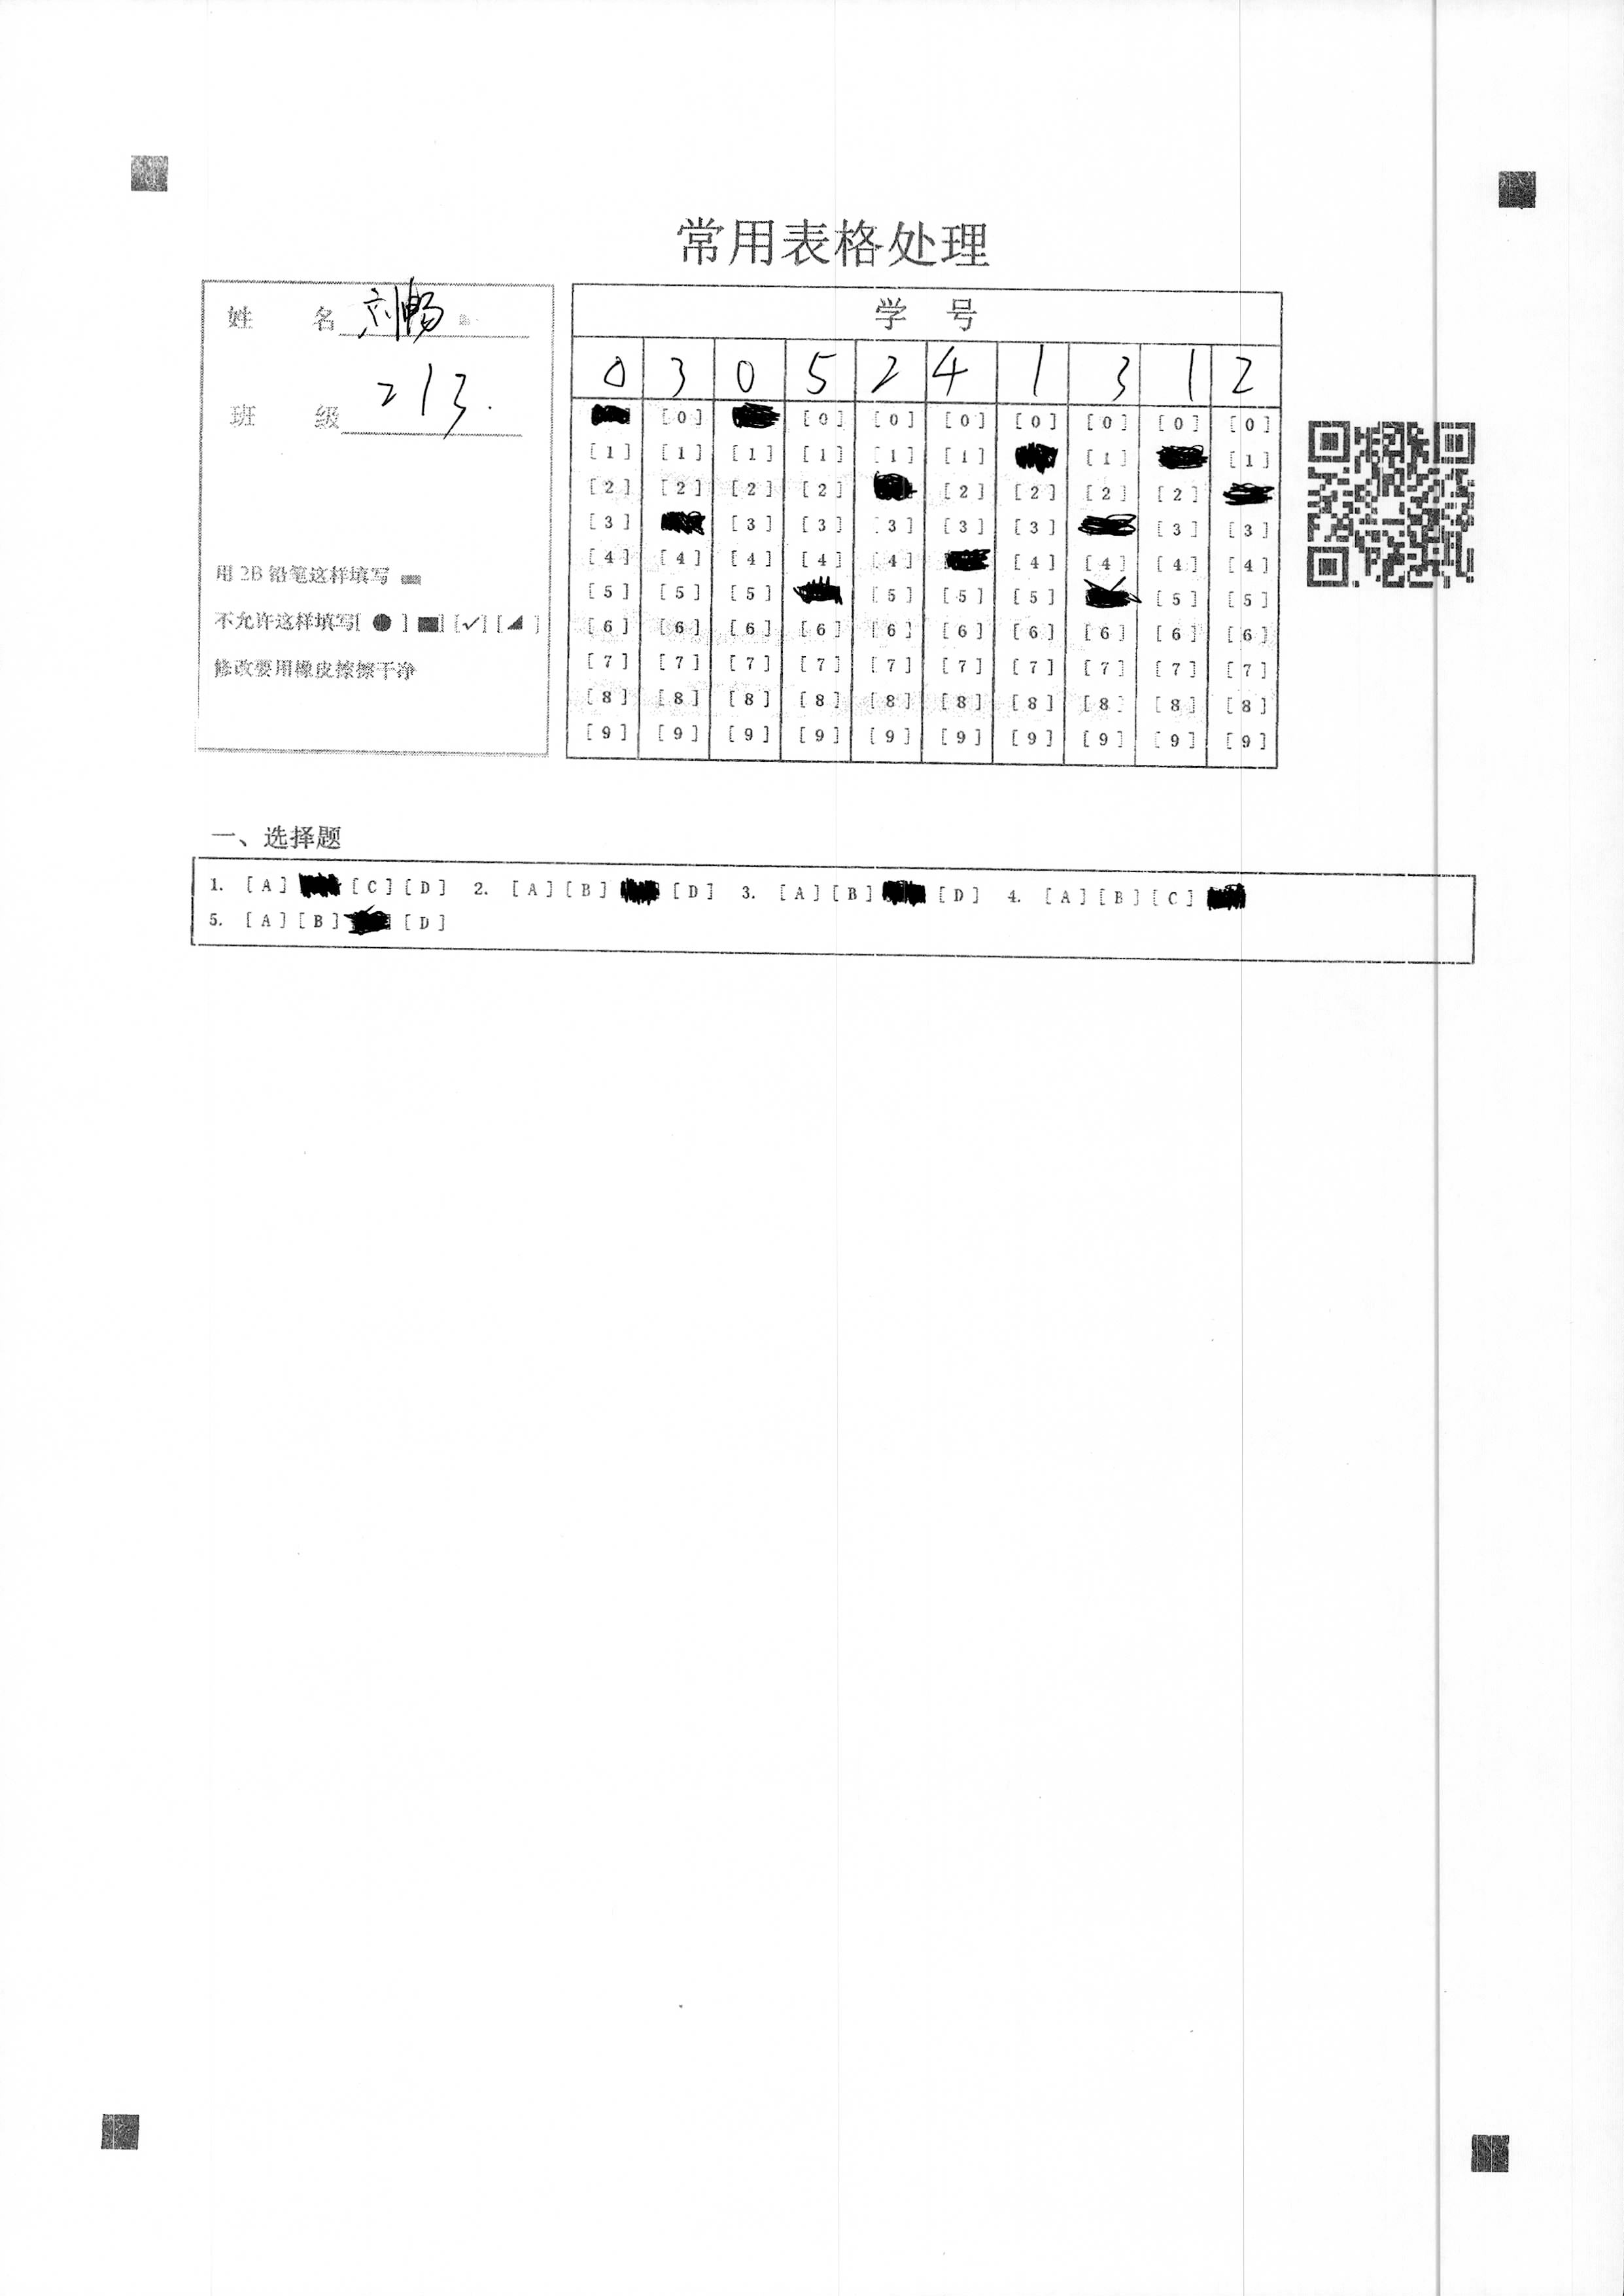 常用表格处理
姓 名 刘畅
班 级 213.
用2B铅笔这样填写
不允许这样填写[ ● ] [■] [✓] [◢ ]
修改要用橡皮擦擦干净
学 号
0 3 0 5 2 4 1 3 1 2
[0] [0] [0] [0] [0] [0] [0] [0]
[1] [1] [1] [1] [1] [1] [1] [1]
[2] [2] [2] [2] [2] [2] [2] [2]
[3] [3] [3] [3] [3] [3] [3] [3]
[4] [4] [4] [4] [4] [4] [4] [4] [4]
[5] [5] [5] [5] [5] [5] [5] [5]
[6] [6] [6] [6] [6] [6] [6] [6] [6] [6]
[7] [7] [7] [7] [7] [7] [7] [7] [7] [7]
[8] [8] [8] [8] [8] [8] [8] [8] [8] [8]
[9] [9] [9] [9] [9] [9] [9] [9] [9] [9]
一、选择题
1. [A] [C] [D] 2. [A] [B] [D] 3. [A] [B] [D] 4. [A] [B] [C]
5. [A] [B] [D]